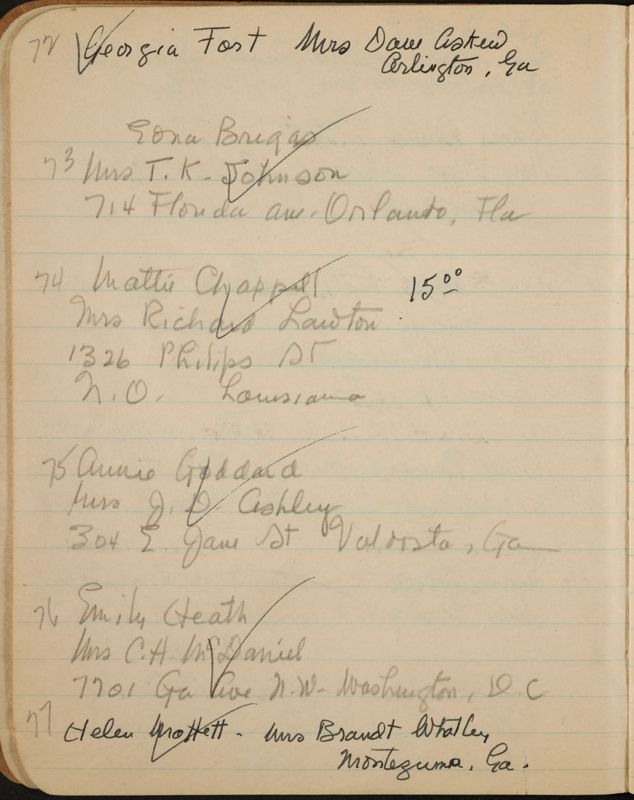 72 Georgia Fort Mrs Dave Askew
Arlington, Ga
Edna Briggs
73 Mrs T. K. Johnson
714 Florida ave. Orlando, Fla
74 Mattie Chappell 15⁰⁰
Mrs Richard Lawton
1326 Philips St
N.O. Louisiana
75 Annie Goddard
Mrs J. D. Ashley
304 E. Jane St Valdosta, Ga
76 Emily Heath
Mrs C. H. McDaniel
7701 Ga Ave N.W. Washington, D.C
77 Helen Moffett - Mrs Brandt Whatley
Montezuma, Ga.